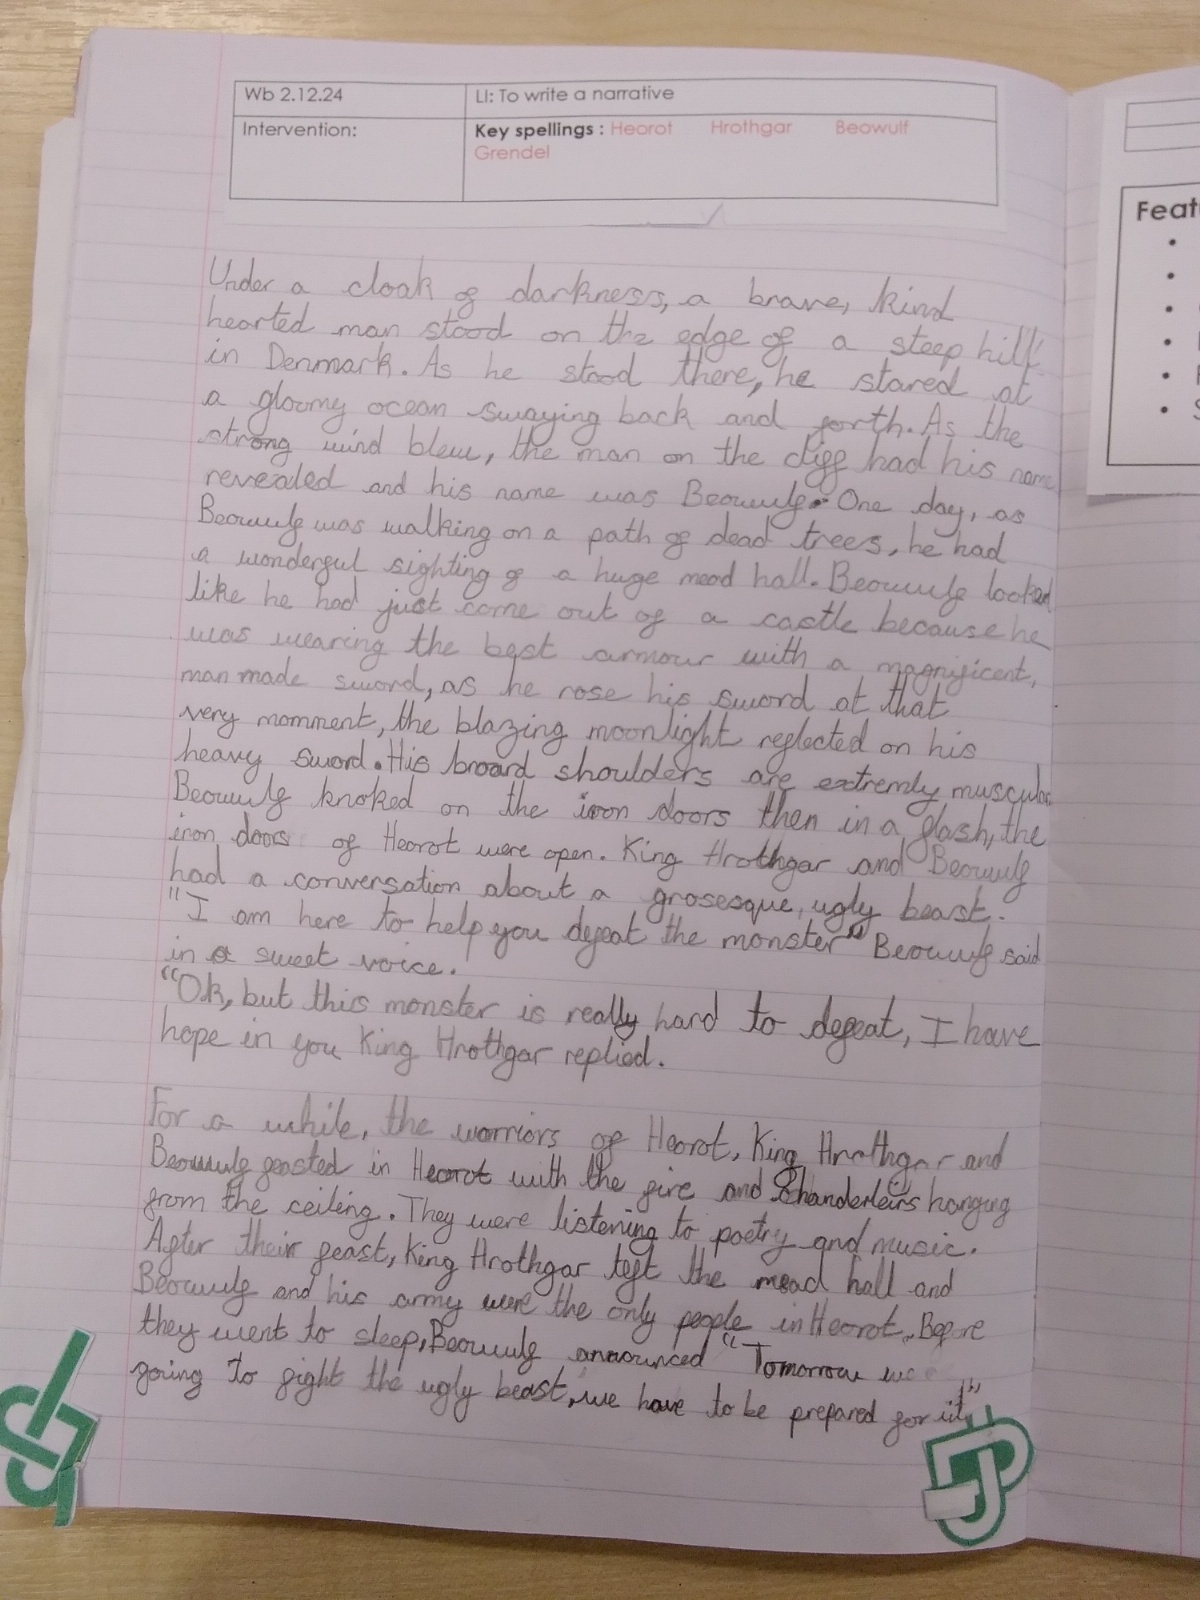 Wb 2.12.24
LI: To write a narrative
Intervention:
Key spellings : Heorot Hrothgar Beowulf
Grendel
Under a cloak of darkness, a brave, kind
hearted man stood on the edge of a steep hill
in Denmark. As he stood there, he stared at
a gloomy ocean swaying back and forth. As the
strong wind blew, the man on the cliff had his name
revealed and his name was Beowulf. One day, as
Beowulf was walking on a path of dead trees, he had
a wonderful sighting of a huge mead hall. Beowulf looked
like he had just come out of a castle because he
was wearing the best armour with a magnificent,
man made sword, as he rose his sword at that
very momment, the blazing moonlight reflected on his
heavy sword. His broard shoulders are extremly muscular.
Beowulf knoked on the iron doors then in a flash, the
iron doors of Heorot were open. King Hrothgar and Beowulf
had a conversation about a grosesque, ugly beast.
"I am here to help you defeat the monster" Beowulf said
in a sweet voice.
"Ok, but this monster is really hard to defeat, I have
hope in you King Hrothgar replied.
For a while, the warriors of Heorot, King Hrothgar and
Beowulf feasted in Heorot with the fire and Chanderleirs hanging
from the ceiling. They were listening to poetry and music.
After their feast, King Hrothgar left the mead hall and
Beowulf and his army were the only people in Heorot. Before
they went to sleep, Beowulf announced "Tomorrow
going to fight the ugly beast, we have to be prepared for it"
Feat